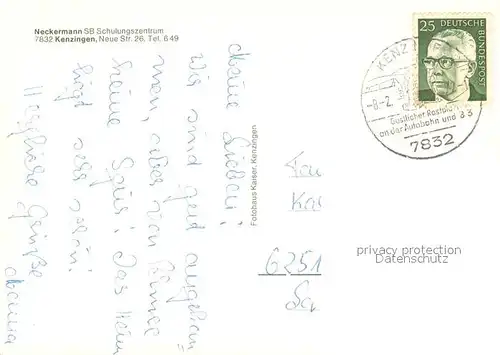 Neckermann SB Schulungszentrum
7832 Kenzingen, Neue Str. 26, Tel. 6 49
Meine Lieben!
Wir sind gut angekom
men, aber von Schnee
keine Spur! Das Heim
liegt sehr schön.
Herzliche Grüße
Mama
Fotohaus Kaiser, Kenzingen
25 DEUTSCHE
BUNDESPOST
KENZ
-8-2.
Gastlicher Rastpl
an der Autobahn und B 3
7832
Kar
6251
privacy protection
Datenschutz